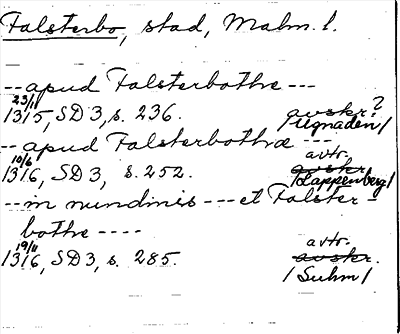 Falsterbo, stad, Malm. l.
-- apud Falsterbothe ---
23/11 1315, SD 3, s. 236. avskr? /Ugnaden/
-- apud Falsterbothæ ---
10/6 1316, SD 3, s. 252. avtr. avskr /Lappenberg/
--- in nundinis --- et Falster-
bothe ----
19/11 1316, SD 3, s. 285. avtr. avskr. /Suhm/